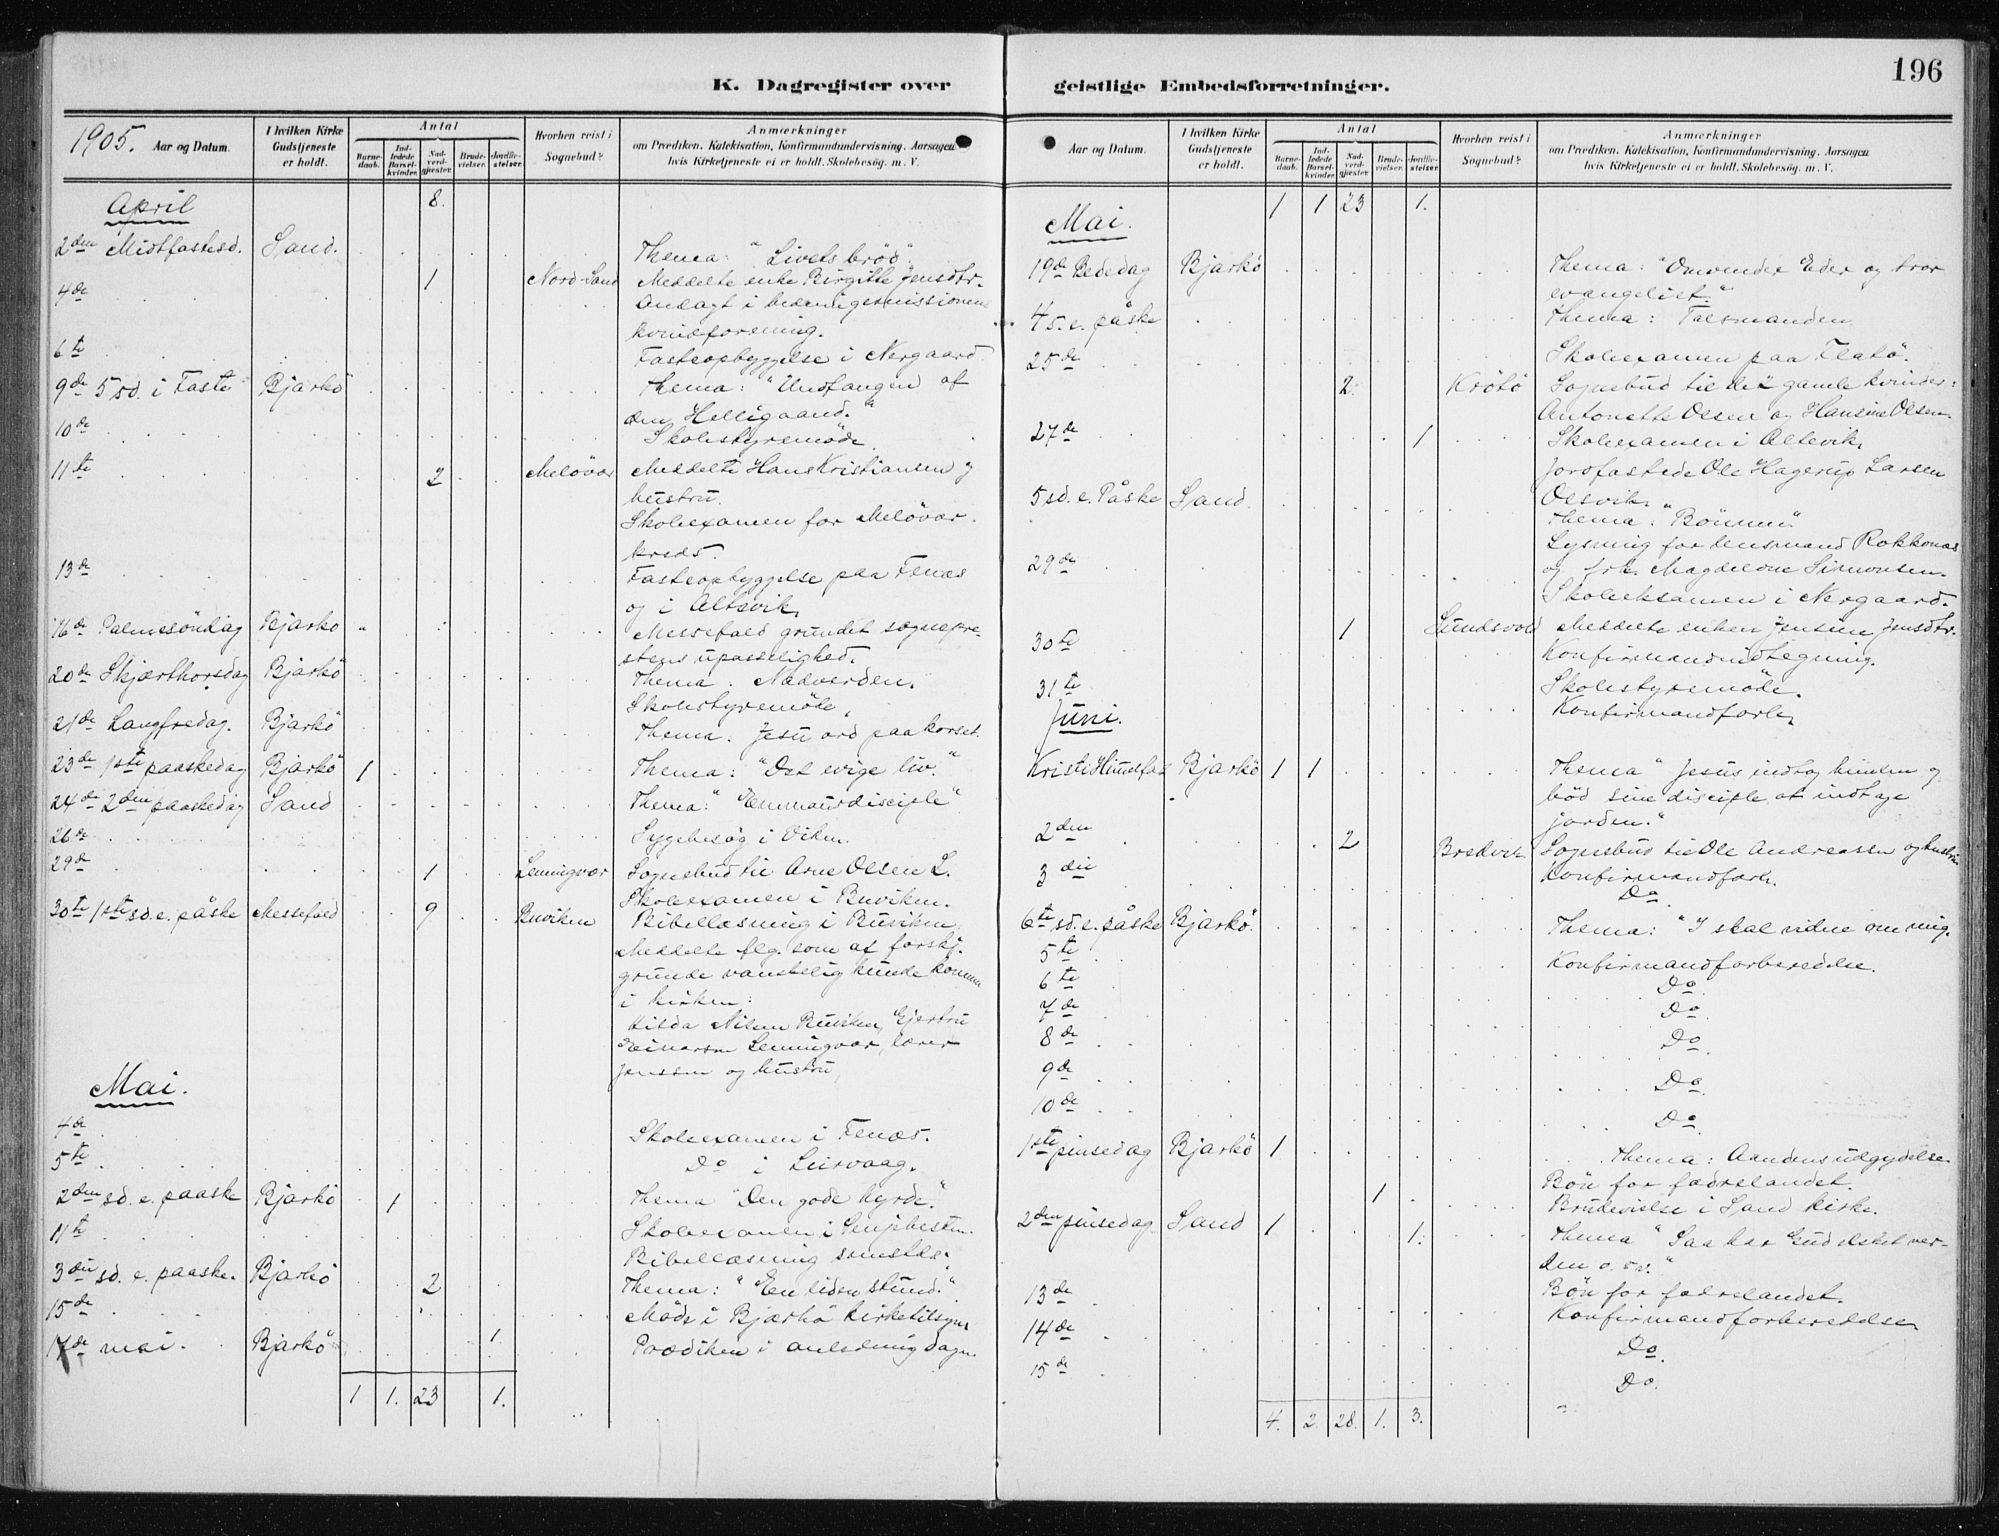 196
K. Dagregister over
1905. Aar og Datum.
I hvilken Kirke Gudstjeneste er holdt.
Antal
Barnedaab.
Indledede Barselkvinder.
Nadverdgjæster.
Brudevielser.
Jordfæstelser.
Hvorhen reist i Sognebud?
Anmærkninger
om Prædiken. Katekisation, Konfirmandundervisning. Aarsagen
hvis Kirketjeneste ei er holdt. Skolebesög. m. V.
April 8.
2den Midtfastesd. Sand. Thema: "Livets bröd".
4de 1 Nord-Sand Meddelte enke Birgitte Jensdtr.
Andagt i hedningemissionens
kvindforening.
6te Fasteopbyggelse i Nergaard
9de 5 sd. i Faste Bjarkö Thema: "Undfangen af
den Helligaand."
10de Skolestyremöde.
11te 2 Melövær Meddelte Hans Kristiansen og
hustru.
Skoleexamen for Melövær
kreds.
13de Fasteopbyggelse paa Fenæs
og i Altevik,
16de Palmesöndag Bjarkö Messefald grundet sognepre-
stens upasselighed.
20de Skjærthorsdag Bjarkö Thema: Nadverden.
Skolestyremöde,
21de Langfredag. Bjarkö Thema: Jesu ord paa korset.
23de 1ste paaskedag Bjarkö 1 Thema: "Det evige liv."
24de 2den paaskedag Sand Thema: "Emmausdisciple"
26de Sygebesög i Viken.
29de 1 Lemingvær Sognebud til Arne Olsen L.
Skoleexamen i Buviken.
30te 1ste sd. e. påske Messefald 9 Buviken Bibellæsning i Buviken.
Meddelte flg. som af forskj.
grunde vanskelig kunde komme
i kirken:
Hilda Nilsen Buviken, Gjertru
Einarsen Lemingvær, lærer
Jenssen og hustru,
Mai.
4de Skoleexamen i Fenæs.
5te Do i Leirvaag.
2den sd. e. paaske Bjarkö 1 Thema "Den gode hyrde."
11te Skoleexamen i
Bibellæsning sammesteds.
3die sd. e. paaske. Bjarkö 2 Thema: "En liden stund."
15de Möde i Bjarkö kirketilsyn
17de mai. Bjarkö 1. Prædiken i anledning dagen.
1 1. 23 1.
geistlige Embedsforretninger.
Aar og Datum.
I hvilken Kirke Gudstjeneste er holdt.
Antal
Barnedaab.
Indledede Barselkvinder.
Nadverdgjæster.
Brudevielser.
Jordfæstelser.
Hvorhen reist i Sognebud?
Anmærkninger
om Prædiken. Katekisation, Konfirmandundervisning. Aarsagen
hvis Kirketjeneste ei er holdt. Skolebesög. m. V.
1 1 23 1.
Mai.
19de Bededag Bjarkö Thema: "Omvender Eder og tror
evangeliet."
4 s. e. påske Thema: Talsmanden
25de Skoleexamen paa Flatö.
2 Krötö Sognebud til de 2 gamle kvinder:
Antonette Olsen og Hansine Olsen.
27de 1 Skoleexamen i Altevik,
Jordfæstede Ole Hagerup Larsen
Olsvik,
5 sd. e. Påske Sand. Thema: "Bönnen".
Lysning for lensmand Rokkonæs
og frk. Magdelone Simonsen.
29de Skoleeksamen i Nergaard.
30te 1 Sundsvold Meddelte enken Jensine Jensdtr.
Konfirmandindtegning.
31te Skolestyremöde.
Konfirmandforb.
Juni.
Kristi Himlfad Bjarkö 1 1 Thema "Jesus indtog himlen og
böd sine disciple at indtage
jorden."
2den 2 Bredvik Sognebud til Ole Andreassen og hustru
Konfirmandforb.
3die Do.
6te sd. e. påske Bjarkö. Thema: "I skal vidne om mig.
5te Konfirmandforberedelse.
6te Do
7de Do
8de Do
9de Do
10de Do
1ste pinsedag Bjarkö 1 Thema: Aandens udgydelse
Bön for fædrelandet.
1 Brudevielse i Sand kirke.
2den pinsedag Sand 1 1. Thema "Saa har Gud elsket ver-
den o. s. v."
Bön for fædrelandet.
13de Konfirmandforberedelse
14de Do.
15de Do.
4. 2. 28. 1. 3.